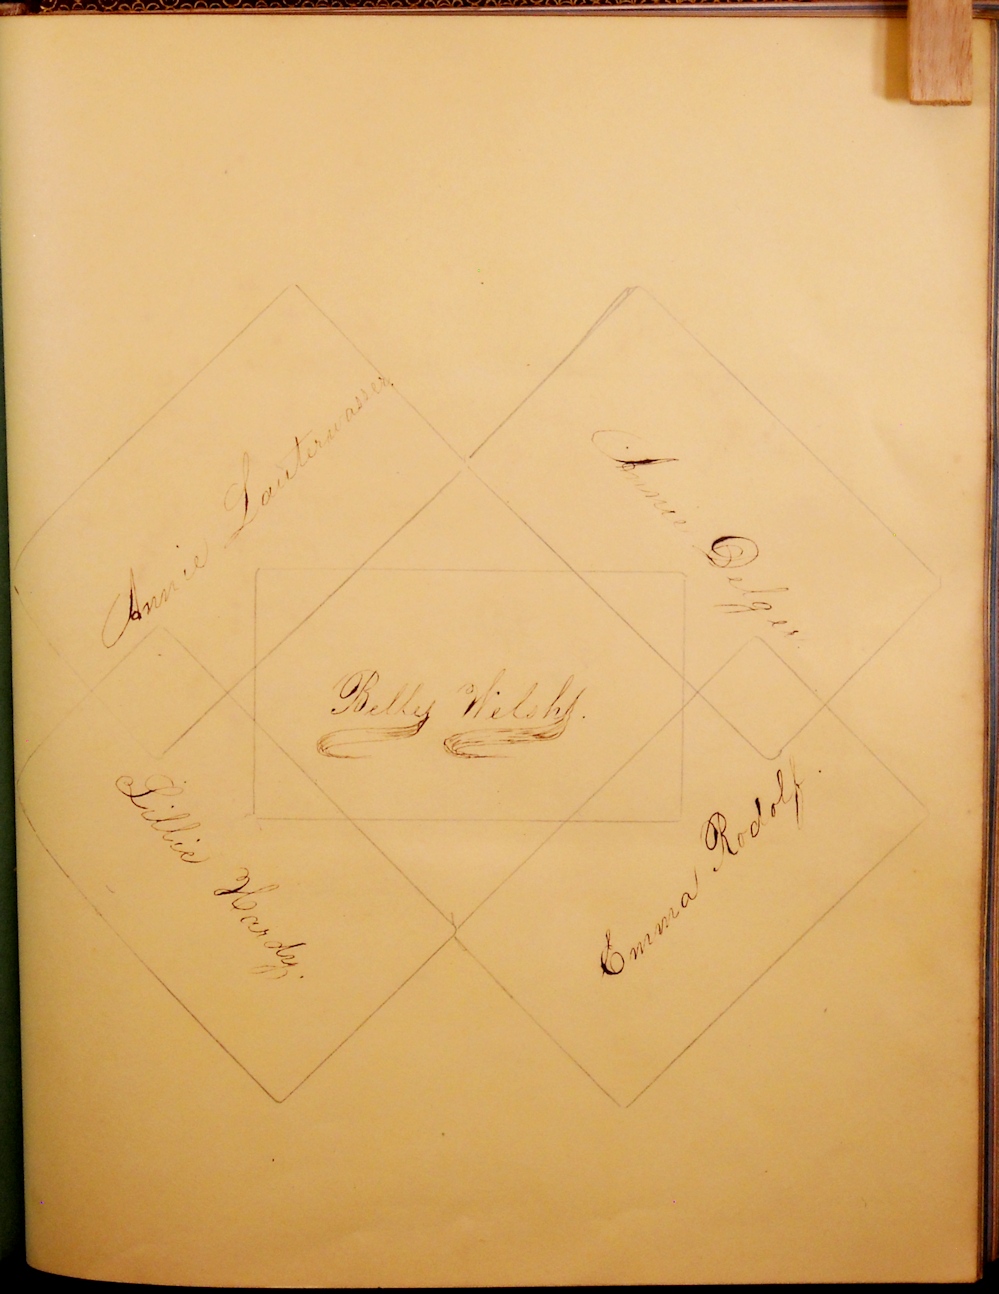 Annie Lauterwasser
Annie Delger
Belle Welsh.
Lillie Hardy.
Emma Rodolf.